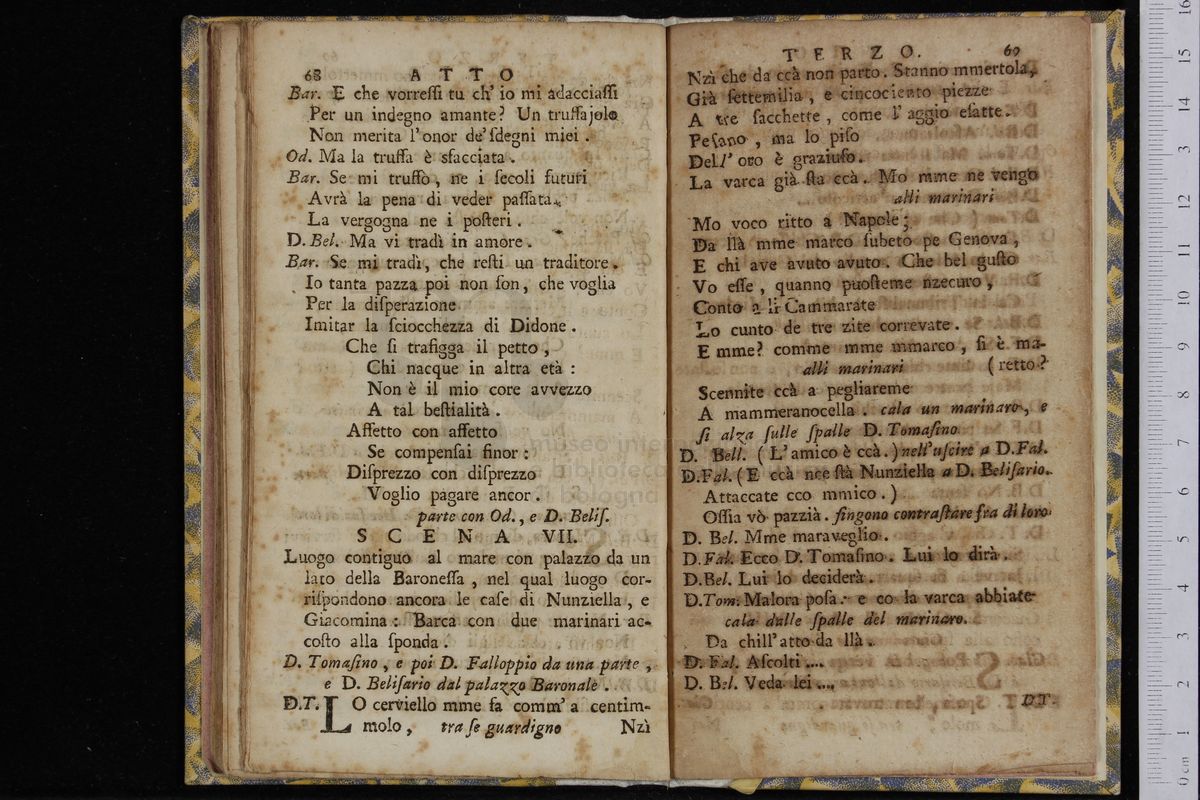 68 ATTO
Bar. E che vorreſſi tu ch' io mi adacciaſſi
Per un indegno amante? Un truffajolo
Non merita l'onor de'ſdegni miei.
Od. Ma la truffa è sfacciata.
Bar. Se mi truffò, ne i ſecoli futuri
Avrà la pena di veder paſſata
La vergogna ne i poſteri.
D. Bel. Ma vi tradì in amore.
Bar. Se mi tradì, che reſti un traditore.
Io tanta pazza poi non ſon, che voglia
Per la diſperazione
Imitar la ſciocchezza di Didone.
Che ſi trafigga il petto,
Chi nacque in altra età:
Non è il mio core avvezzo
A tal beſtialità.
Affetto con affetto
Se compenſai finor:
Diſprezzo con diſprezzo
Voglio pagare ancor.
parte con Od., e D. Beliſ.
SCENA VII.
Luogo contiguo al mare con palazzo da un
lato della Baroneſſa, nel qual luogo cor-
riſpondono ancora le caſe di Nunziella, e
Giacomina: Barca con due marinari ac-
coſto alla ſponda.
D. Tomaſino, e poi D. Falloppio da una parte,
e D. Beliſario dal palazzo Baronale.
D.T. LO cerviello mme fa comm' a centim-
molo, tra ſe guardigno Nzì
TERZO. 69
Nzì che da ccà non parto. Stanno mmertola,
Già ſettemilia, e cincociento piezze
A tre ſacchette, come l' aggio eſatte.
Peſano, ma lo piſo
Dell' oro è graziuſo.
La varca già ſta ccà. Mo mme ne vengo
alli marinari
Mo voco ritto a Napole;
Da llà mme marco ſubeto pe Genova,
E chi ave avuto avuto. Che bel guſto
Vo eſſe, quanno puoſteme nzecuro,
Conto a li Cammarate
Lo cunto de tre zite correvate.
E mme? comme mme mmarco, ſi è ma-
alli marinari (retto?
Scennite ccà a pegliareme
A mammeranocella. cala un marinaro, e
ſi alza ſulle ſpalle D. Tomaſino
D. Bell. (L'amico è ccà.) nell'uſcire a D. Fal.
D.Fal. (E ccà nce ſtà Nunziella a D. Beliſario.
Attaccate cco mmico.)
Oſſia vò pazzià. fingono contraſtare fra di loro
D. Bel. Mme maraveglio.
D.Fal. Ecco D. Tomaſino. Lui lo dirà.
D.Bel. Lui lo deciderà.
D.Tom. Malora poſa. e co la varca abbiate
cala dalle ſpalle del marinaro.
Da chill'atto da llà.
D. Fal. Aſcolti....
D. Bel. Veda lei....
DT.
museo
biblioteca
di bologna
16
15
14
13
12
11
10
9
8
7
6
5
4
3
2
1
0 cm